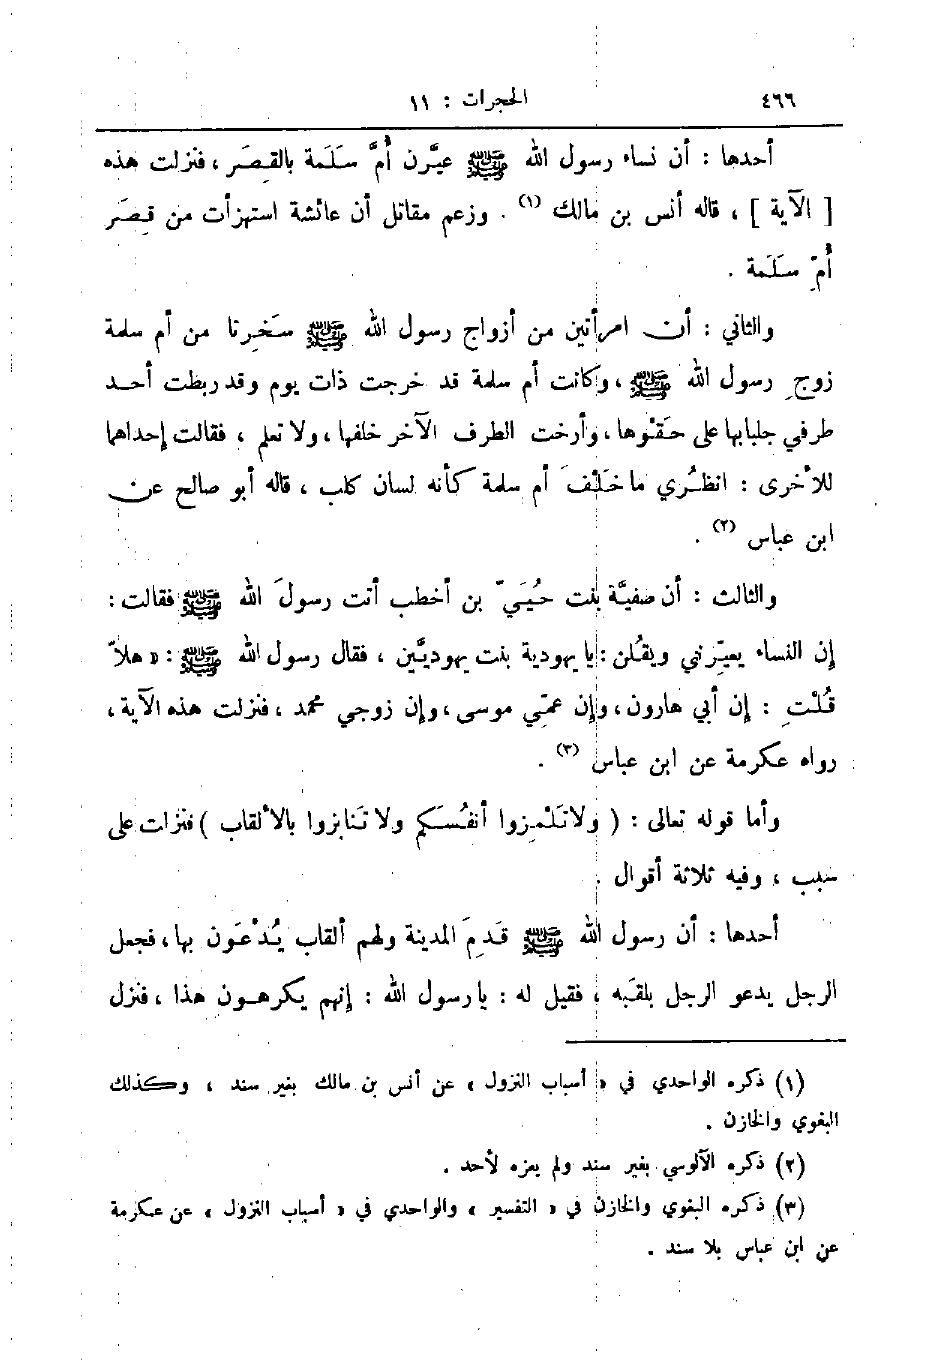 ٤٦٦ الحجرات : ١١
أحدها : أن نساء رسول الله ﷺ عيَّرن أُمَّ سَلَمة بالقِصَر ، فنزلت هذه
[ الآية ] ، قاله أنس بن مالك (١) . وزعم مقاتل أن عائشة استهزأت من قِصَر
أُمِّ سَلَمة .
والثاني : أن امرأتين من أزواج رسول الله ﷺ سَخِرتا من أم سلمة
زوجِ رسول الله ﷺ ، وكانت أم سلمة قد خرجت ذات يوم وقد ربطت أحد
طرفي جلبابها على حَقْوها ، وأرخت الطرف الآخر خلفها ، ولا تعلم ، فقالت إحداهما
للأخرى : انظُري ما خَلْفَ أم سلمة كأنه لسان كلب ، قاله أبو صالح عن
ابن عباس (٢) .
والثالث : أن صفيَّة بنت حُيَيّ بن أخطب أتت رسولَ الله ﷺ فقالت :
إن النساء يعيِّرنني ويقُلن : يا يهودية بنت يهوديَّين ، فقال رسول الله ﷺ : « هلاّ
قُلْتِ : إن أبي هارون ، وإن عمّي موسى ، وإن زوجي محمد ، فنزلت هذه الآية ،
رواه عكرمة عن ابن عباس (٣) .
وأما قوله تعالى : ( ولا تَلْمِزوا أنفُسَكم ولا تَنابَزوا بالألقاب ) فنزلت على
سبب ، وفيه ثلاثة أقوال .
أحدها : أن رسول الله ﷺ قَدِمَ المدينة ولهم ألقاب يُدْعَون بها ، فجعل
الرجل يدعو الرجل بلقَبه ، فقيل له : يا رسول الله : إنهم يكرهون هذا ، فنزل
(١) ذكره الواحدي في « أسباب النزول » عن أنس بن مالك بغير سند ، وكذلك
البغوي والخازن .
(٢) ذكره الآلوسي بغير سند ولم يعزه لأحد .
(٣) ذكره البغوي والخازن في « التفسير » والواحدي في « أسباب النزول » عن عكرمة
عن ابن عباس بلا سند .